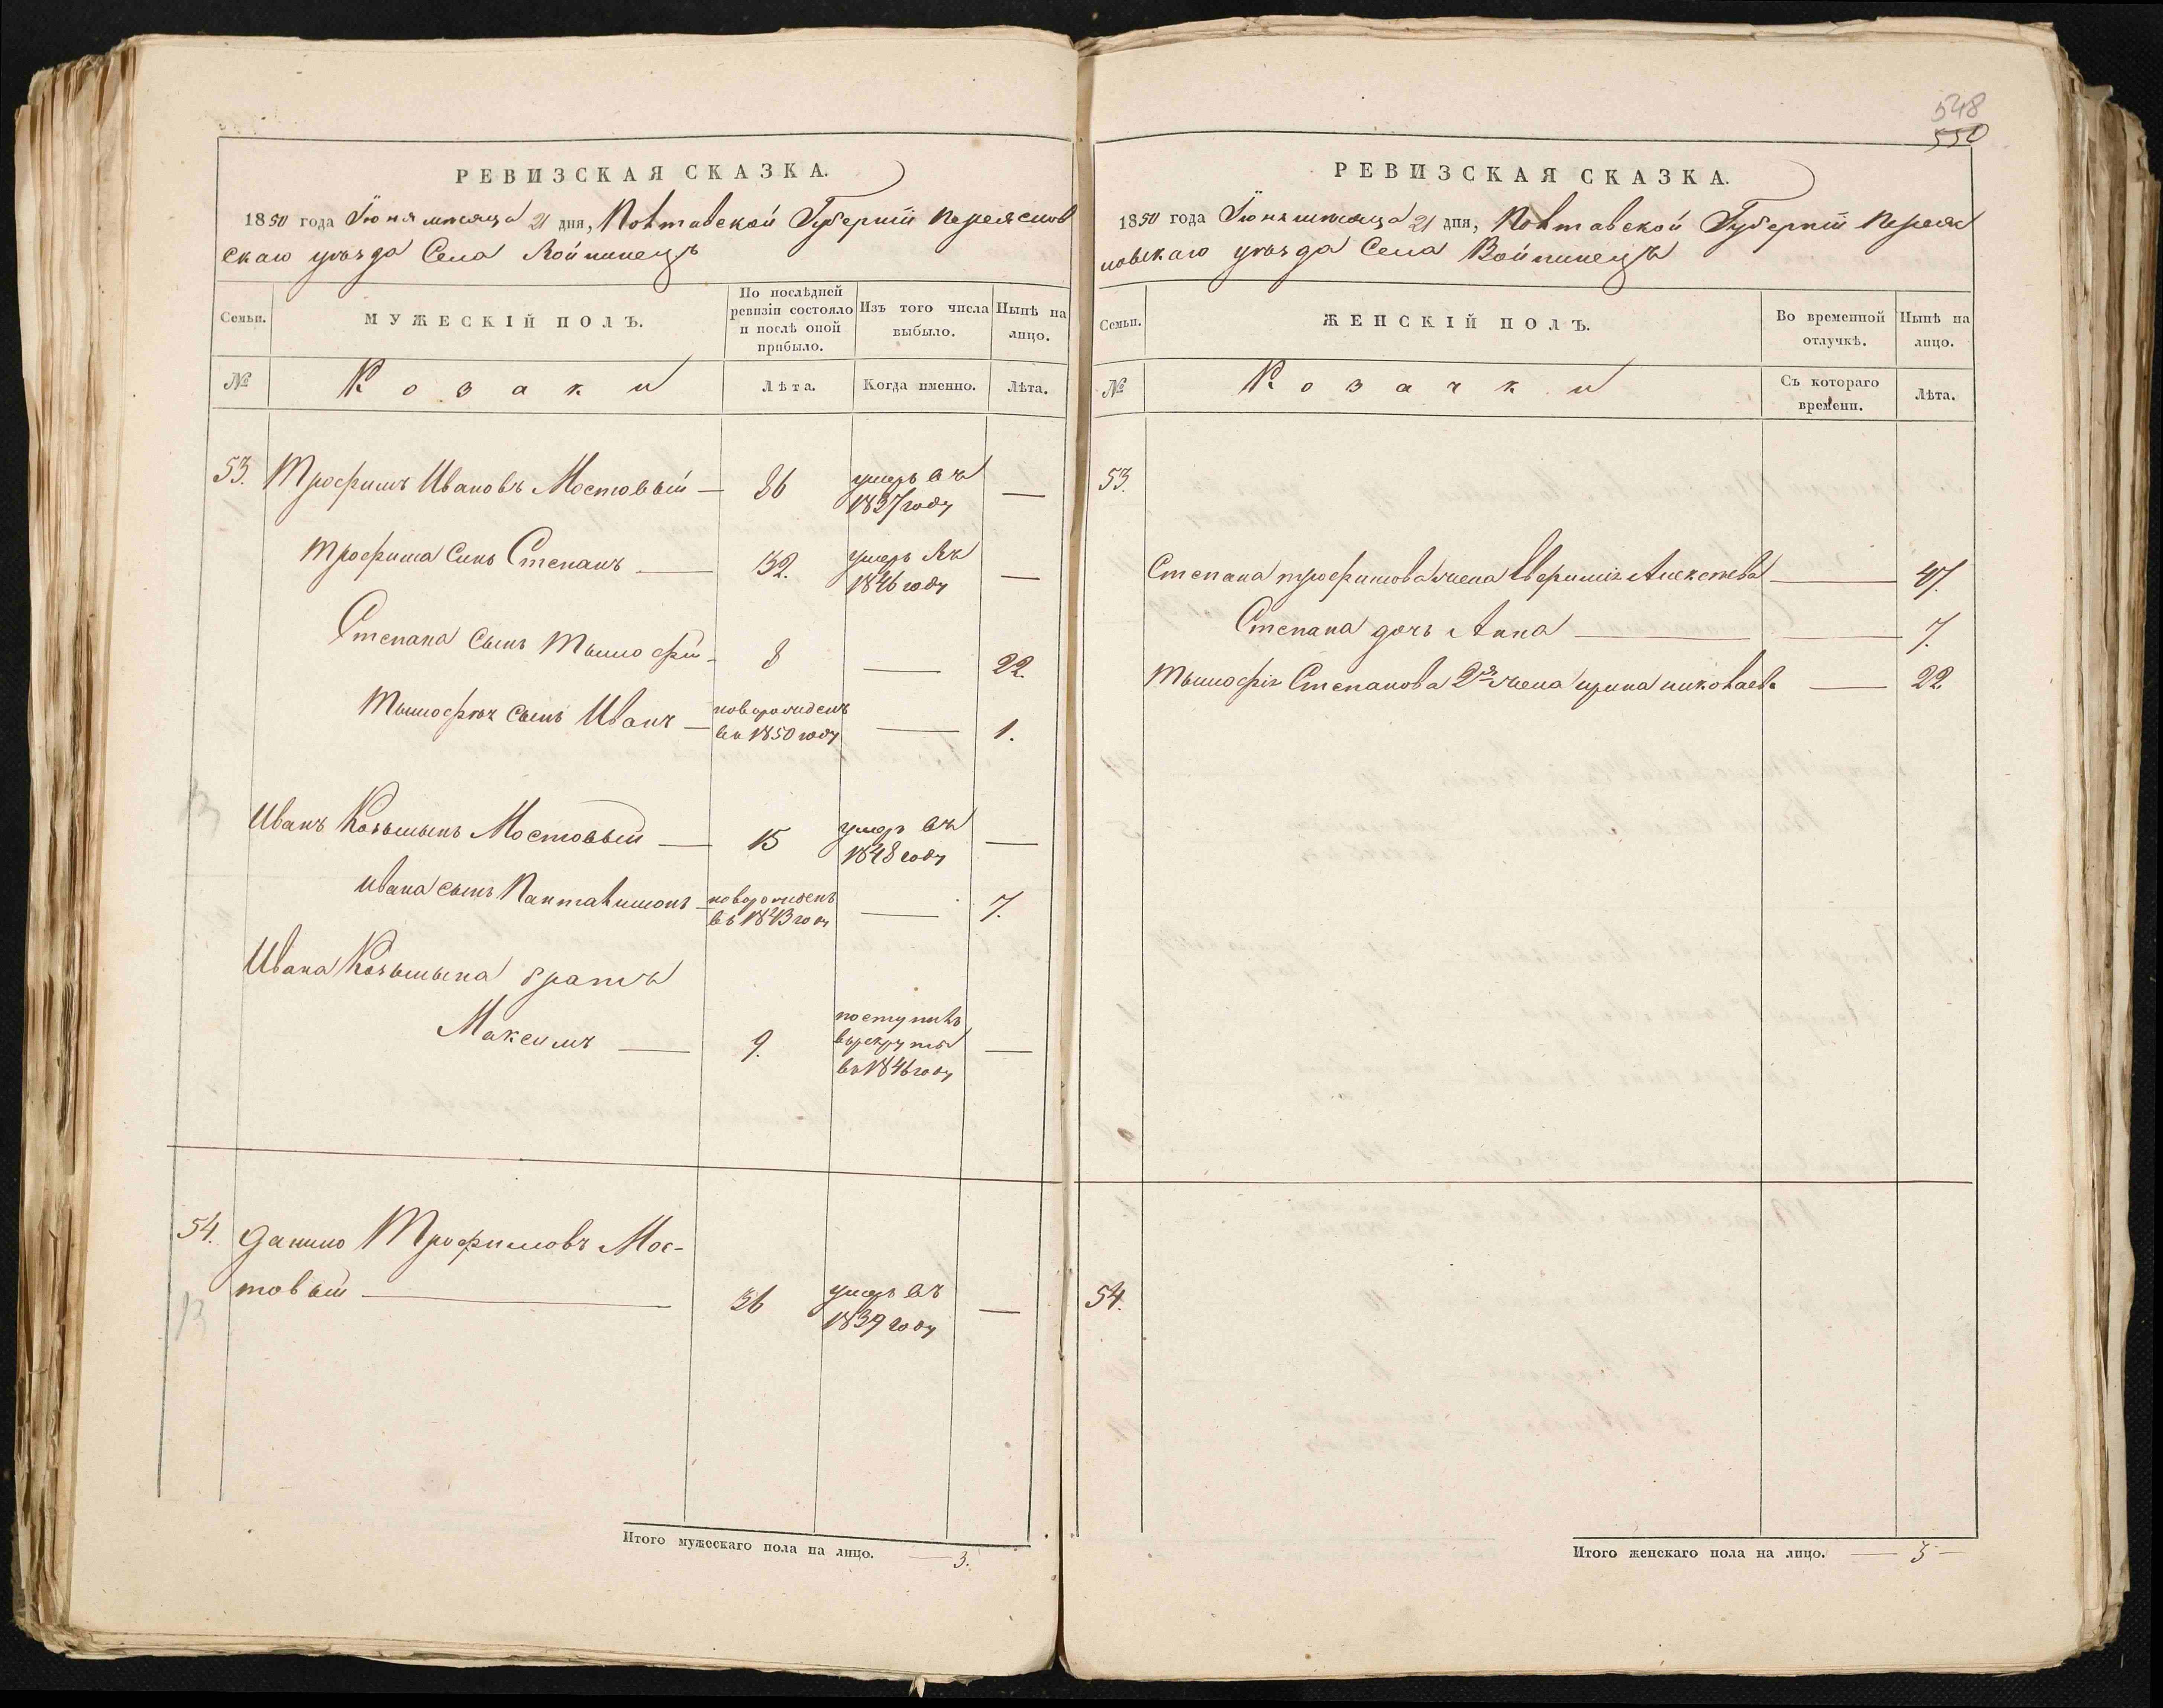 РЕВИЗСКАЯ СКАЗКА.
1850 года Июня мѣсяца 21 дня, Полтавской Губерніи Переяслов
скаго уѣзда Села Войтинецъ
Семьи.
МУЖЕСКІЙ ПОЛЪ.
По послѣдней
ревизіи состояло
и послѣ оной
прибыло.
Изъ того числа
выбыло.
Нынѣ на
лицо.
№
Козаки
Лѣта.
Когда именно.
Лѣта.
53. Трофимъ Ивановъ Мостовый — 86 умеръ въ —
1837 году
Трофима Синъ Степанъ — 32. умеръ въ —
1846 году
Степана сынъ Тымофій — 8 — 22.
Тымофѣя сынъ Иванъ — новорожденъ — 1.
въ 1850 году
Иванъ Козьмынъ Мостовый — 15 умеръ въ —
1848 году
Ивана сынъ Пантавимонъ — новорожденъ — 7.
въ 1843 году
Ивана Козьмына братъ
Максимъ — 9. поступилъ —
вырекруты
въ 1846 году
54. Данило Трофимовъ Мос-
товый — 36 умеръ въ —
1839 году
Итого мужескаго пола на лицо. — 3.
548
550
РЕВИЗСКАЯ СКАЗКА.
1850 года Июня мѣсяца 21 дня, Полтавской Губерніи Переяс
ловскаго уѣзда Села Войтинецъ
Семьи.
ЖЕНСКІЙ ПОЛЪ.
Во временной
отлучкѣ.
Нынѣ на
лицо.
№
Козачки
Съ котораго
времени.
Лѣта.
53.
Степана трофимова жена Евфимія Алексѣева — 47.
Степана дочь Анна — — 7.
Тымофія Степанова 2я жена ирина николаева — 22
54.
Итого женскаго пола на лицо. — 3 —